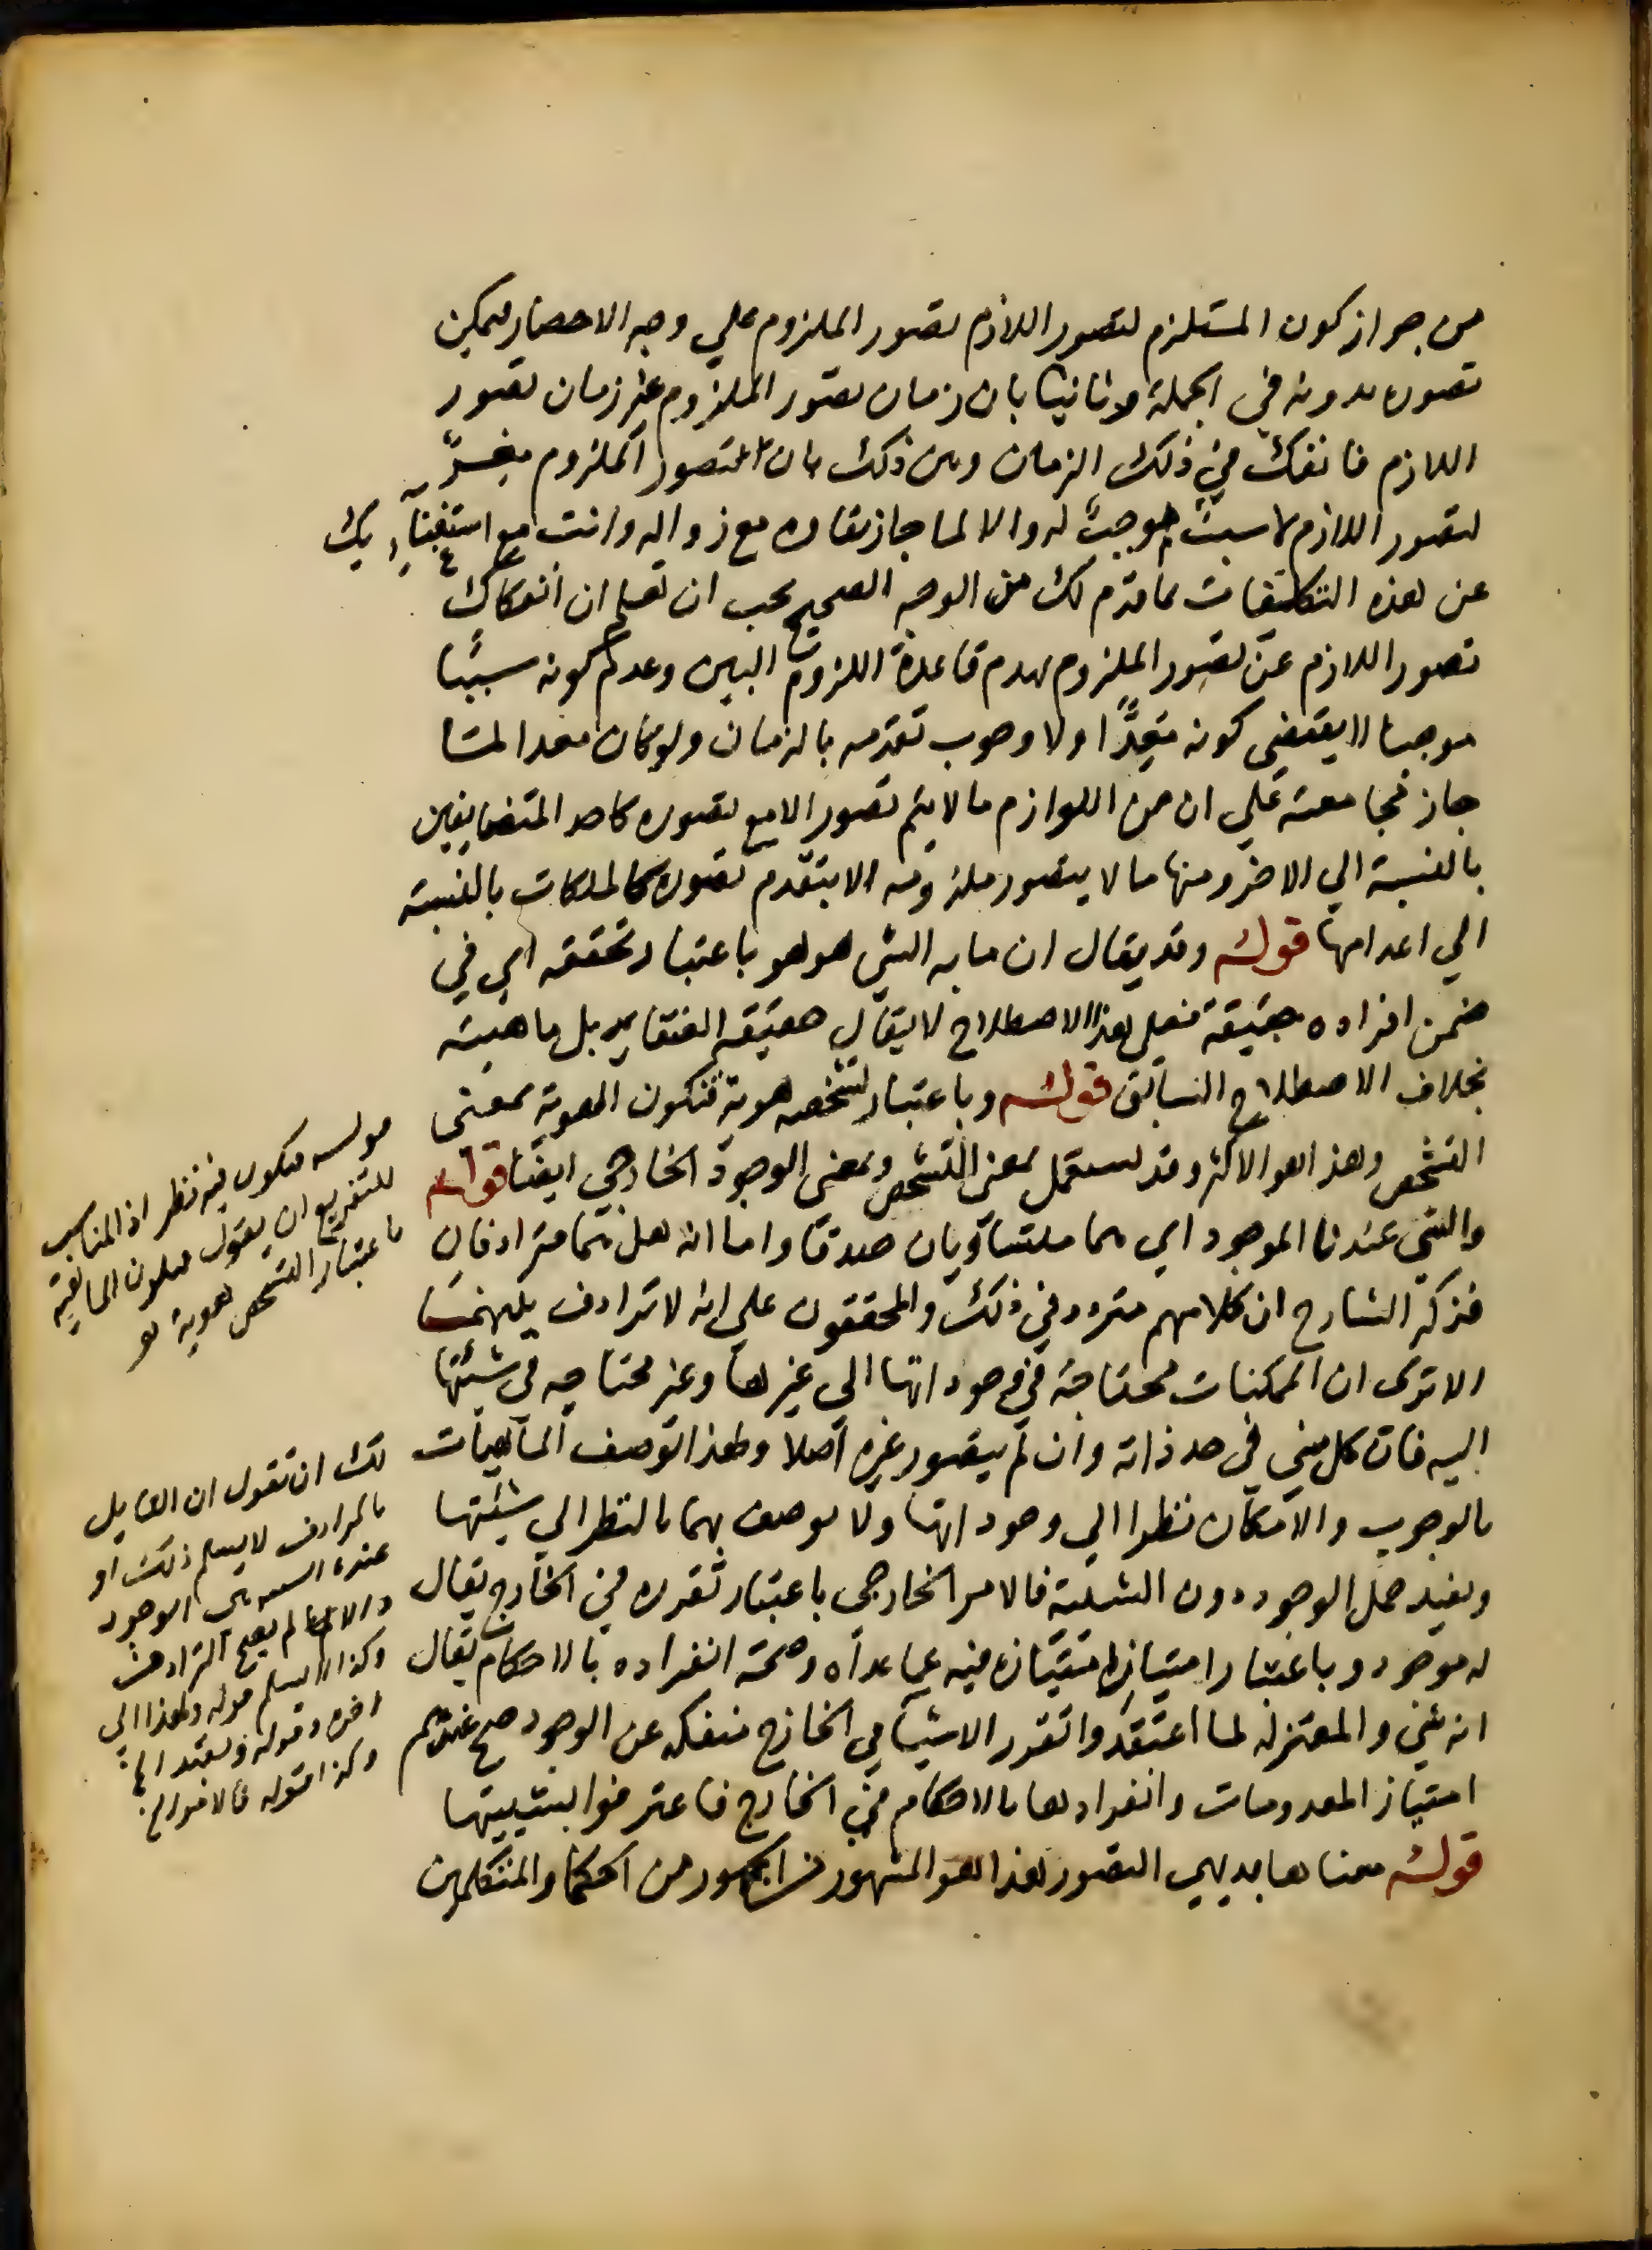 من جواز كون المستلزم لتصور اللازم تصور الملزوم علي وجه الاحضار فيمكن
تصوره بدونه في الجملة وثانيا بان زمان تصور الملزوم غير زمان تصور
اللازم فانفك في ذلك الزمان ومن ذلك بان تصور الملزوم معد
لتصور اللازم لا سبب موجب له والا لما جاز بقاؤه مع زواله وانت مع استغنايك
عن هذه التكلفات بما قدم لك من الوجه الصحيح يجب ان تعلم ان انفكاك
تصور اللازم عن تصور الملزوم يهدم قاعدة اللزوم البين وعدم كونه سببا
موجبا لا يقتضي كونه معدا ولا وجوب تقدمه بالزمان ولو كان معدا لما
جاز مجامعته علي ان من اللوازم ما لا يتم تصور الا مع تصوره كاحد المتضايفين
بالنسبة الي الاخر ومنها ما لا يتصور ملزومه الا بتقدم تصوره كالملكات بالنسبة
الي اعدامها قوله وقد يقال ان ما به الشي هو هو باعتبار تحققه اي في
ضمن افراده حقيقة فعلي هذا الاصطلاح لا يقال حقيقة العنقا بل ماهيته
بخلاف الاصطلاح السابق قوله وباعتبار تشخصه هوية فتكون الهوية بمعنى
التشخص وهذا هو الاكثر وقد تستعمل بمعنى التشخص وبمعنى الوجود الخارجي ايضا قوله
والشي عندنا الموجود اي هما متساويان صدقا واما انه هل هما مترادفان
فذكر الشارح ان كلامهم متردد في ذلك والمحققون علي انه لا ترادف بينهما
الا ترى ان الممكنات محتاجة في وجوداتها الي غيرها وغير محتاجه في شيئيتها
اليه فان كل شي في حد ذاته وان لم يتصور غيره اصلا ولهذا توصف الماهيات
بالوجوب والامكان نظرا الي وجوداتها ولا توصف بهما بالنظر الي شيئيتها
ويفيد حمل الوجود دون الشيئية فالامر الخارجي باعتبار تقرره في الخارج يقال
له موجود وباعتبار امتيازه فيه عما عداه وصحة انفراده بالاحكام يقال
انه شي والمعتزله لما اعتقدوا تقرر الاشيا في الخارج منفكه عن الوجود صح عندهم
امتياز المعدومات وانفرادها بالاحكام في الخارج فاعترفوا بشييتها
قوله معناها بديهي التصور هذا هو المشهور من الجمهور من الحكما والمتكلمين
قوله فتكون فيه نظر اذ المناسب
للتفريع ان يقول فتكون الماهية
باعتبار التشخص هوية
لك ان تقول ان القايل
بالترادف لا يسلم ذلك او
عنده الوجود
والا لم يصح الترادف
وكذا لا يسلم قوله ولهذا الي
اخره وقوله ويفيد الخ
وكذا قوله فالامر الخ